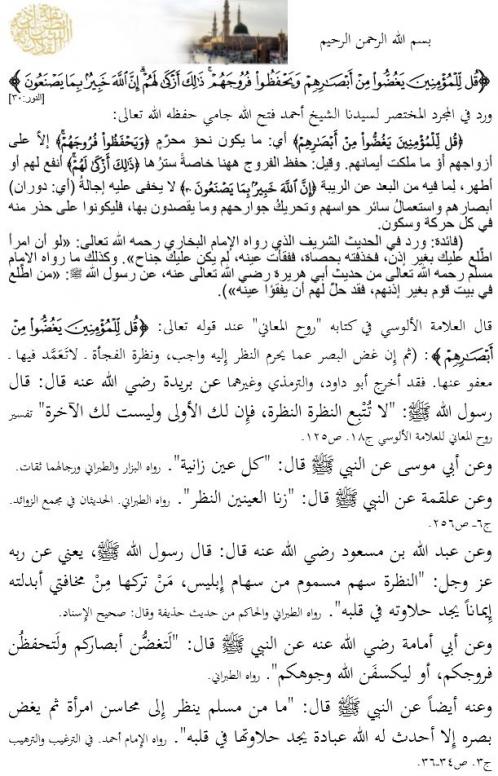 بسم الله الرحمن الرحيم
﴿قُل لِّلْمُؤْمِنِينَ يَغُضُّوا۟ مِنْ أَبْصَٰرِهِمْ وَيَحْفَظُوا۟ فُرُوجَهُمْ ۚ ذَٰلِكَ أَزْكَىٰ لَهُمْ ۗ إِنَّ ٱللَّهَ خَبِيرٌۢ بِمَا يَصْنَعُونَ﴾
[النور:٣٠]
ورد في المجرد المختصر لسيدنا الشيخ أحمد فتح الله جامي حفظه الله تعالى:
﴿قُل لِّلْمُؤْمِنِينَ يَغُضُّوا۟ مِنْ أَبْصَٰرِهِمْ﴾ أي: ما يكون نحوَ محرّمٍ ﴿وَيَحْفَظُوا۟ فُرُوجَهُمْ ۚ﴾ إلاّ على
أزواجهم أو ما ملكت أيمانهم. وقيل: حفظ الفروج ههنا خاصةً سترُها ﴿ذَٰلِكَ أَزْكَىٰ لَهُمْ ۗ﴾ أنفع لهم أو
أطهر، لِما فيه من البعد عن الريبة ﴿إِنَّ ٱللَّهَ خَبِيرٌۢ بِمَا يَصْنَعُونَ ٣٠﴾ لا يخفى عليه إجالةُ (أي: دوران)
أبصارهم واستعمالُ سائر حواسهم وتحريكُ جوارحهم وما يقصدون بها، فليكونوا على حذر منه
في كل حركة وسكون.
(فائدة: ورد في الحديث الشريف الذي رواه الإمام البخاري رحمه الله تعالى: «لو أن امرأ
اطّلع عليك بغير إذن، فخذفته بحصاة، ففقأت عينه، لم يكن عليك جناح». وكذلك ما رواه الإمام
مسلم رحمه الله تعالى من حديث أبي هريرة رضي الله تعالى عنه، عن رسول الله ﷺ: «من اطّلع
في بيت قوم بغير إذنهم، فقد حلّ لهم أن يفقؤا عينه»).
قال العلامة الألوسي في كتابه "روح المعاني" عند قوله تعالى: ﴿قُل لِّلْمُؤْمِنِينَ يَغُضُّوا۟ مِنْ
أَبْصَٰرِهِمْ﴾: (ثم إن غض البصر عما يحرم النظر إليه واجب، ونظرة الفجأة ـ لاتَعَمَّد فيها ـ
معفو عنها. فقد أخرج أبو داود، والترمذي وغيرهما عن بريدة رضي الله عنه قال: قال
رسول الله ﷺ: "لا تُتْبِع النظرة النظرة، فإن لك الأولى وليست لك الآخرة" تفسير
روح المعاني للعلامة الألوسي ج١٨. ص١٢٥.
وعن أبي موسى عن النبي ﷺ قال: "كل عين زانية". رواه البزار والطبراني ورجالهما ثقات.
وعن علقمة عن النبي ﷺ قال: "زنا العينين النظر". رواه الطبراني. الحديثان في مجمع الزوائد.
ج٦ـ ص٢٥٦.
وعن عبد الله بن مسعود رضي الله عنه قال: قال رسول الله ﷺ، يعني عن ربه
عز وجل: "النظرة سهم مسموم من سهام إبليس، مَنْ تركها مِنْ مخافتي أبدلته
إيماناً يجد حلاوته في قلبه". رواه الطبراني والحاكم من حديث حذيفة وقال: صحيح الإسناد.
وعن أبي أمامة رضي الله عنه عن النبي ﷺ قال: "لَتغضُّن أبصاركم ولَتحفظُن
فروجكم، أو ليكسفَن الله وجوهكم". رواه الطبراني.
وعنه أيضاً عن النبي ﷺ قال: "ما من مسلم ينظر إلى محاسن امرأة ثم يغض
بصره إلا أحدث له الله عبادة يجد حلاوتها في قلبه". رواه الإمام أحمد. في الترغيب والترهيب
ج٣. ص٣٤ـ٣٦.